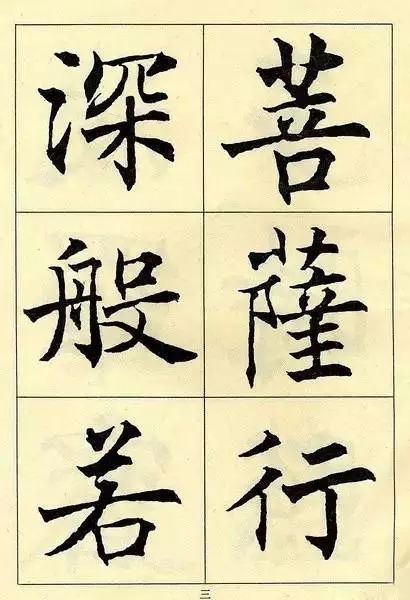 菩薩行
深般若
三